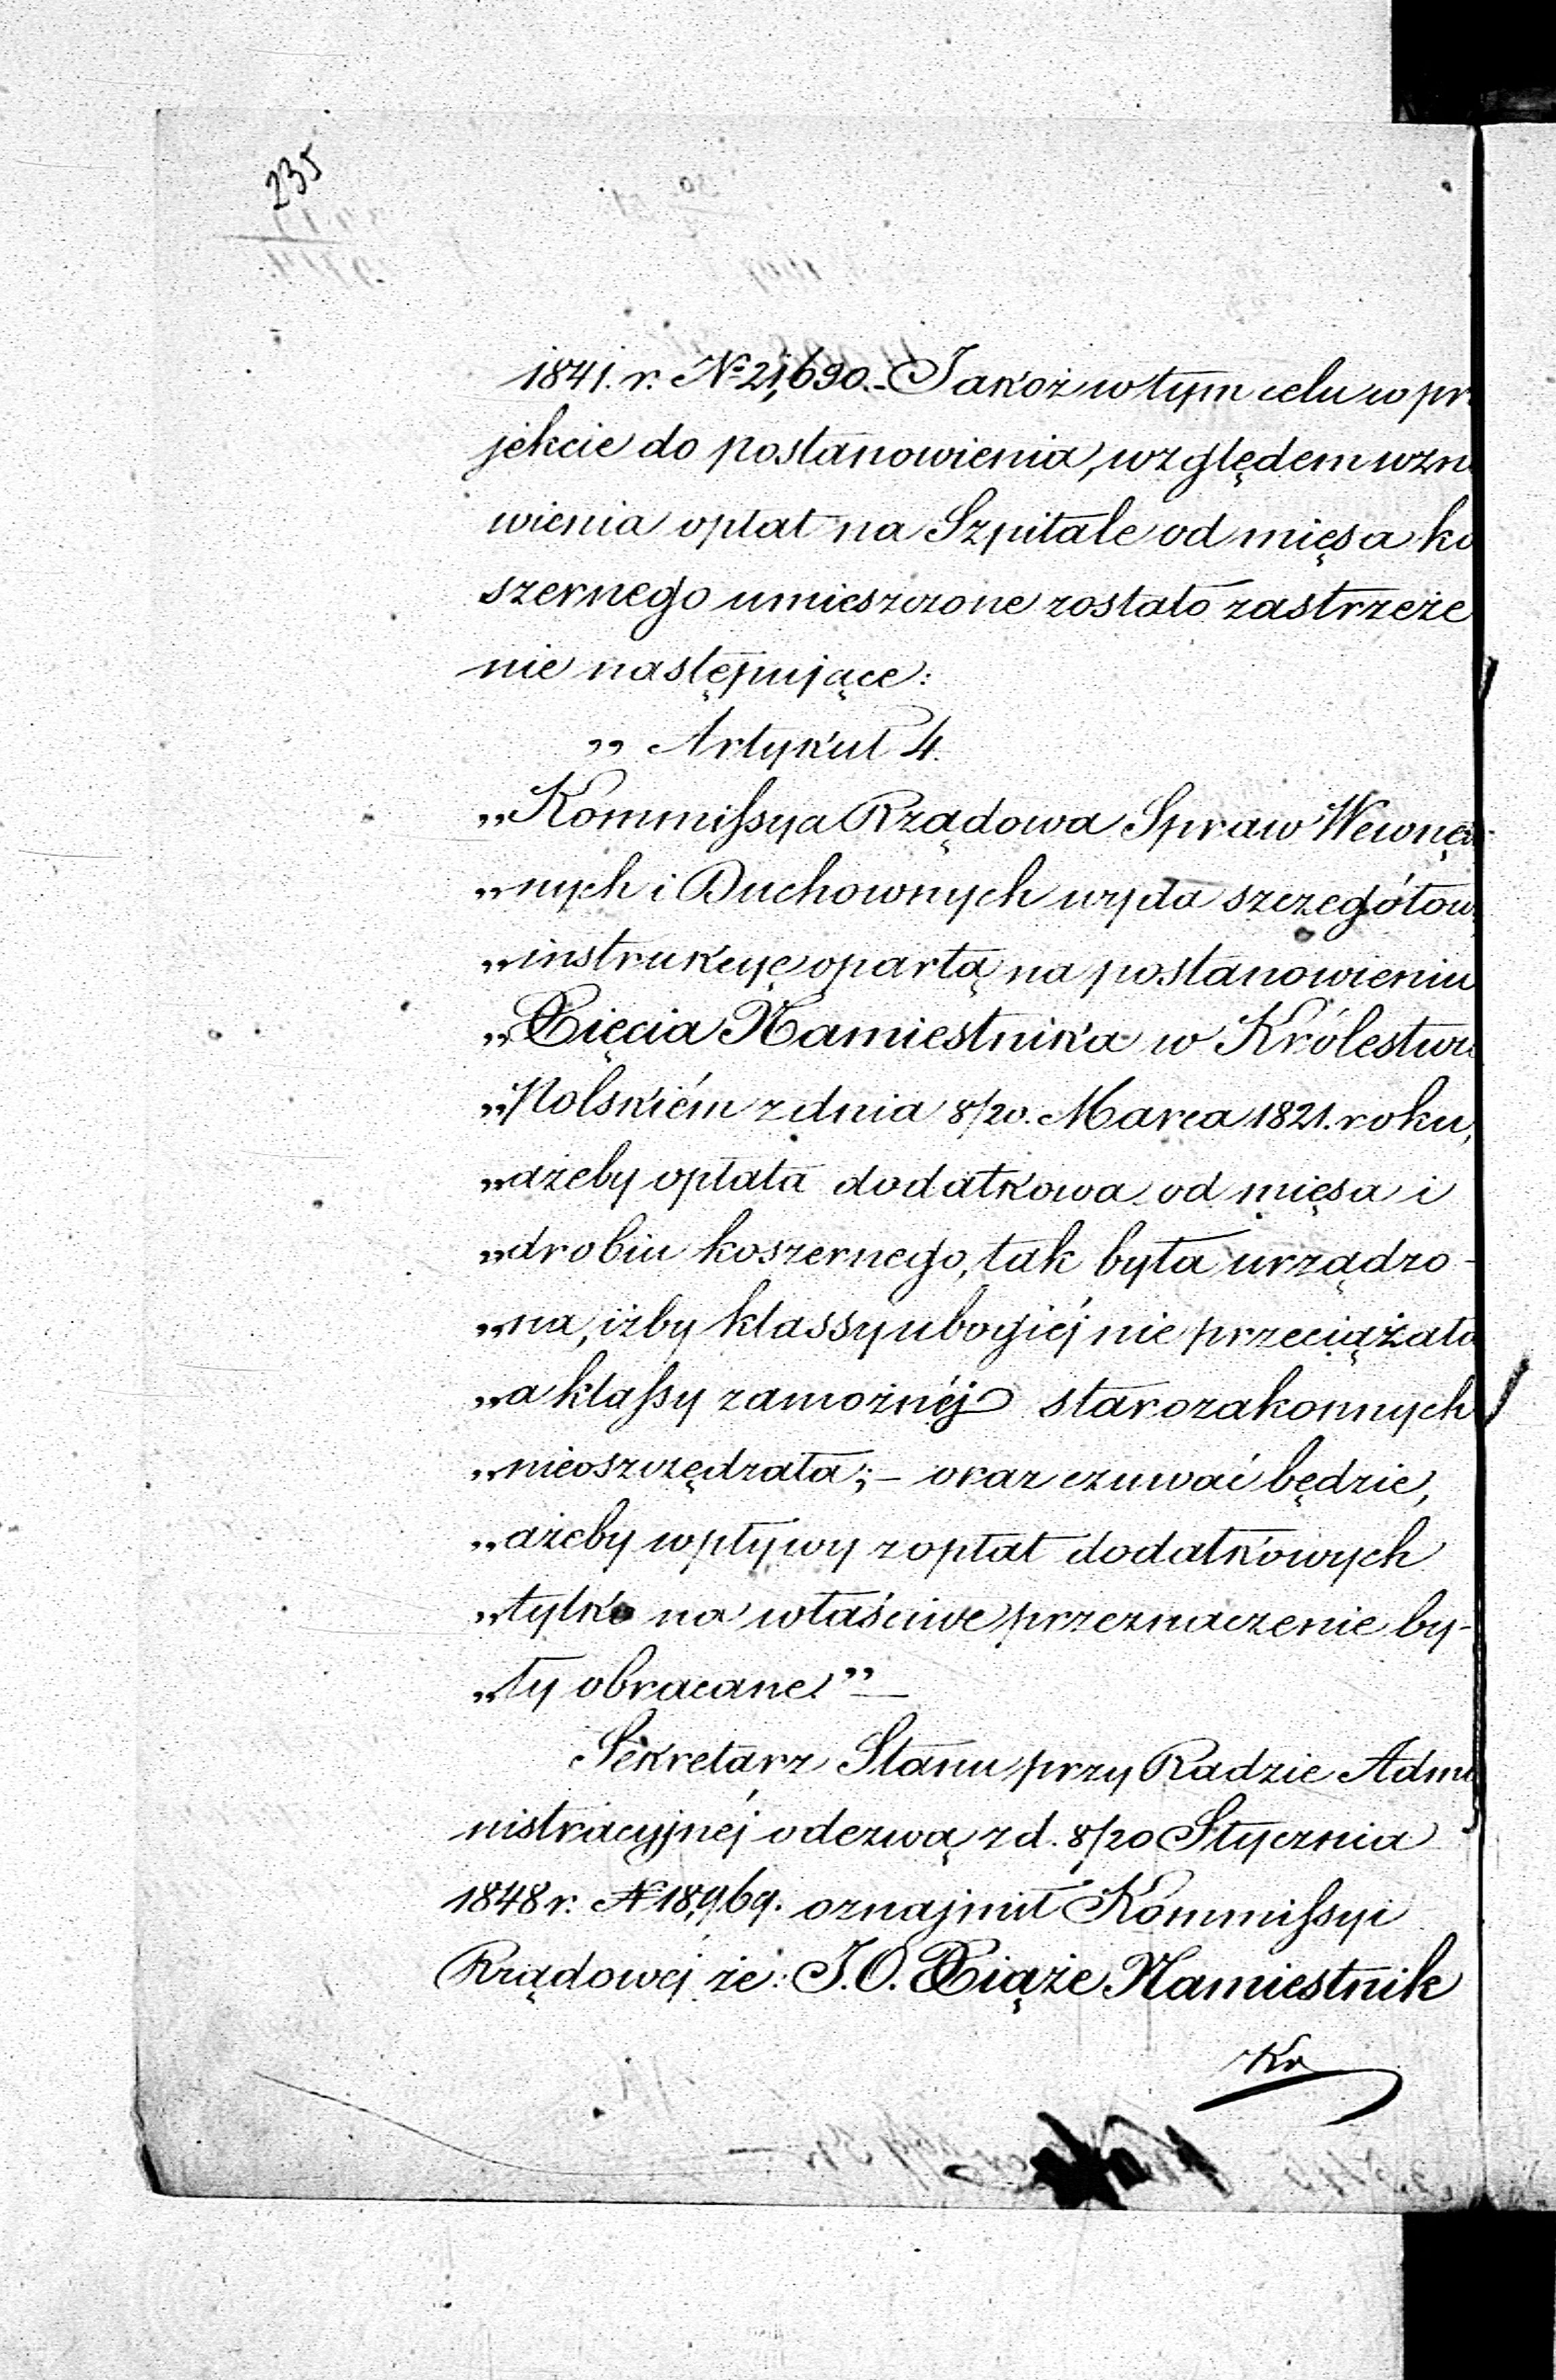 235
1841. r. № 21,690.- Jakoż w tym celu w pr
jekcie do postanowienia, względem wzn
wienia opłat na Szpitale od mięsa ko
szernego umieszczone zostało zastrzeże
nie następujące:
„ Artykuł 4.
„Kommissya Rządowa Spraw Wewnę
„nych i Duchownych wyda szczegółow
„instrukcyę opartą na postanowieniu
„Xięcia Namiestnika w Królestwi
„Polskiém z dnia 8/20. Marca 1821. roku,
„ażeby opłata dodatkowa od mięsa i
„drobiu koszernego, tak była urządzo-
„na, iżby klassy ubogiéj nie przeciążała
„a klassy zamożnéj starozakonnych
„nieoszczędzała; - oraz czuwać będzie,
„ażeby wpływy z opłat dodatkowych
„tylko na właściwe przeznaczenie by-
„ły obracane." —
Sekretarz Stanu przy Radzie Admi
nistracyjnéj odezwą z d. 8/20 Stycznia
1848 r. № 18,969. oznajmił Kommissyi
Rządowéj że: J. O. Xiąże Namiestnik
Kr